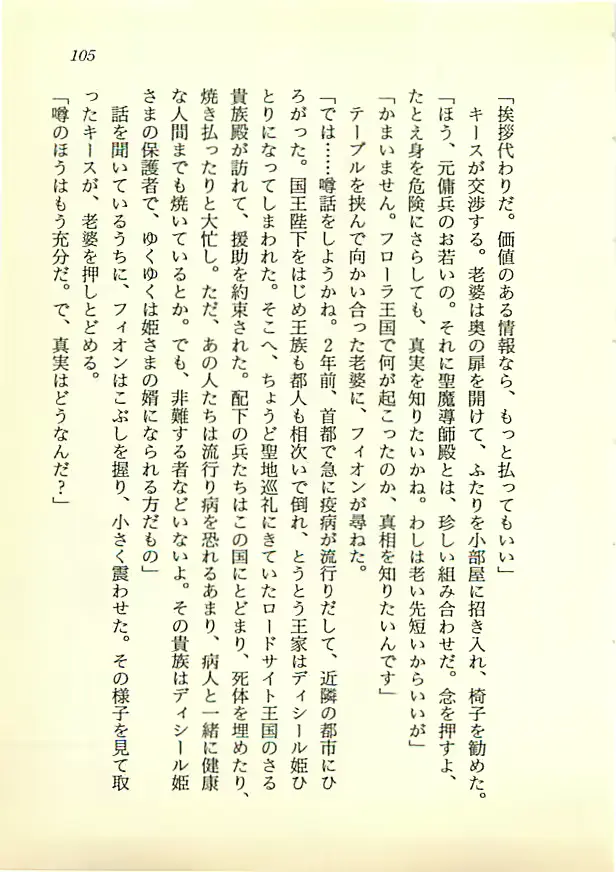 105
「挨拶代わりだ。価値のある情報なら、もっと払ってもいい」
キースが交渉する。老婆は奥の扉を開けて、ふたりを小部屋に招き入れ、椅子を勧めた。
「ほう、元傭兵のお若いの。それに聖魔導師殿とは、珍しい組み合わせだ。念を押すよ、
たとえ身を危険にさらしても、真実を知りたいかね。わしは老い先短いからいいが」
「かまいません。フローラ王国で何が起こったのか、真相を知りたいんです」
テーブルを挟んで向かい合った老婆に、フィオンが尋ねた。
「では……噂話をしようかね。2年前、首都で急に疫病が流行りだして、近隣の都市にひ
ろがった。国王陛下をはじめ王族も都人も相次いで倒れ、とうとう王家はディシール姫ひ
とりになってしまわれた。そこへ、ちょうど聖地巡礼にきていたロードサイト王国のさる
貴族殿が訪れて、援助を約束された。配下の兵たちはこの国にとどまり、死体を埋めたり、
焼き払ったりと大忙し。ただ、あの人たちは流行り病を恐れるあまり、病人と一緒に健康
な人間までも焼いているとか。でも、非難する者などいないよ。その貴族はディシール姫
さまの保護者で、ゆくゆくは姫さまの婿になられる方だもの」
話を聞いているうちに、フィオンはこぶしを握り、小さく震わせた。その様子を見て取
ったキースが、老婆を押しとどめる。
「噂のほうはもう充分だ。で、真実はどうなんだ?」